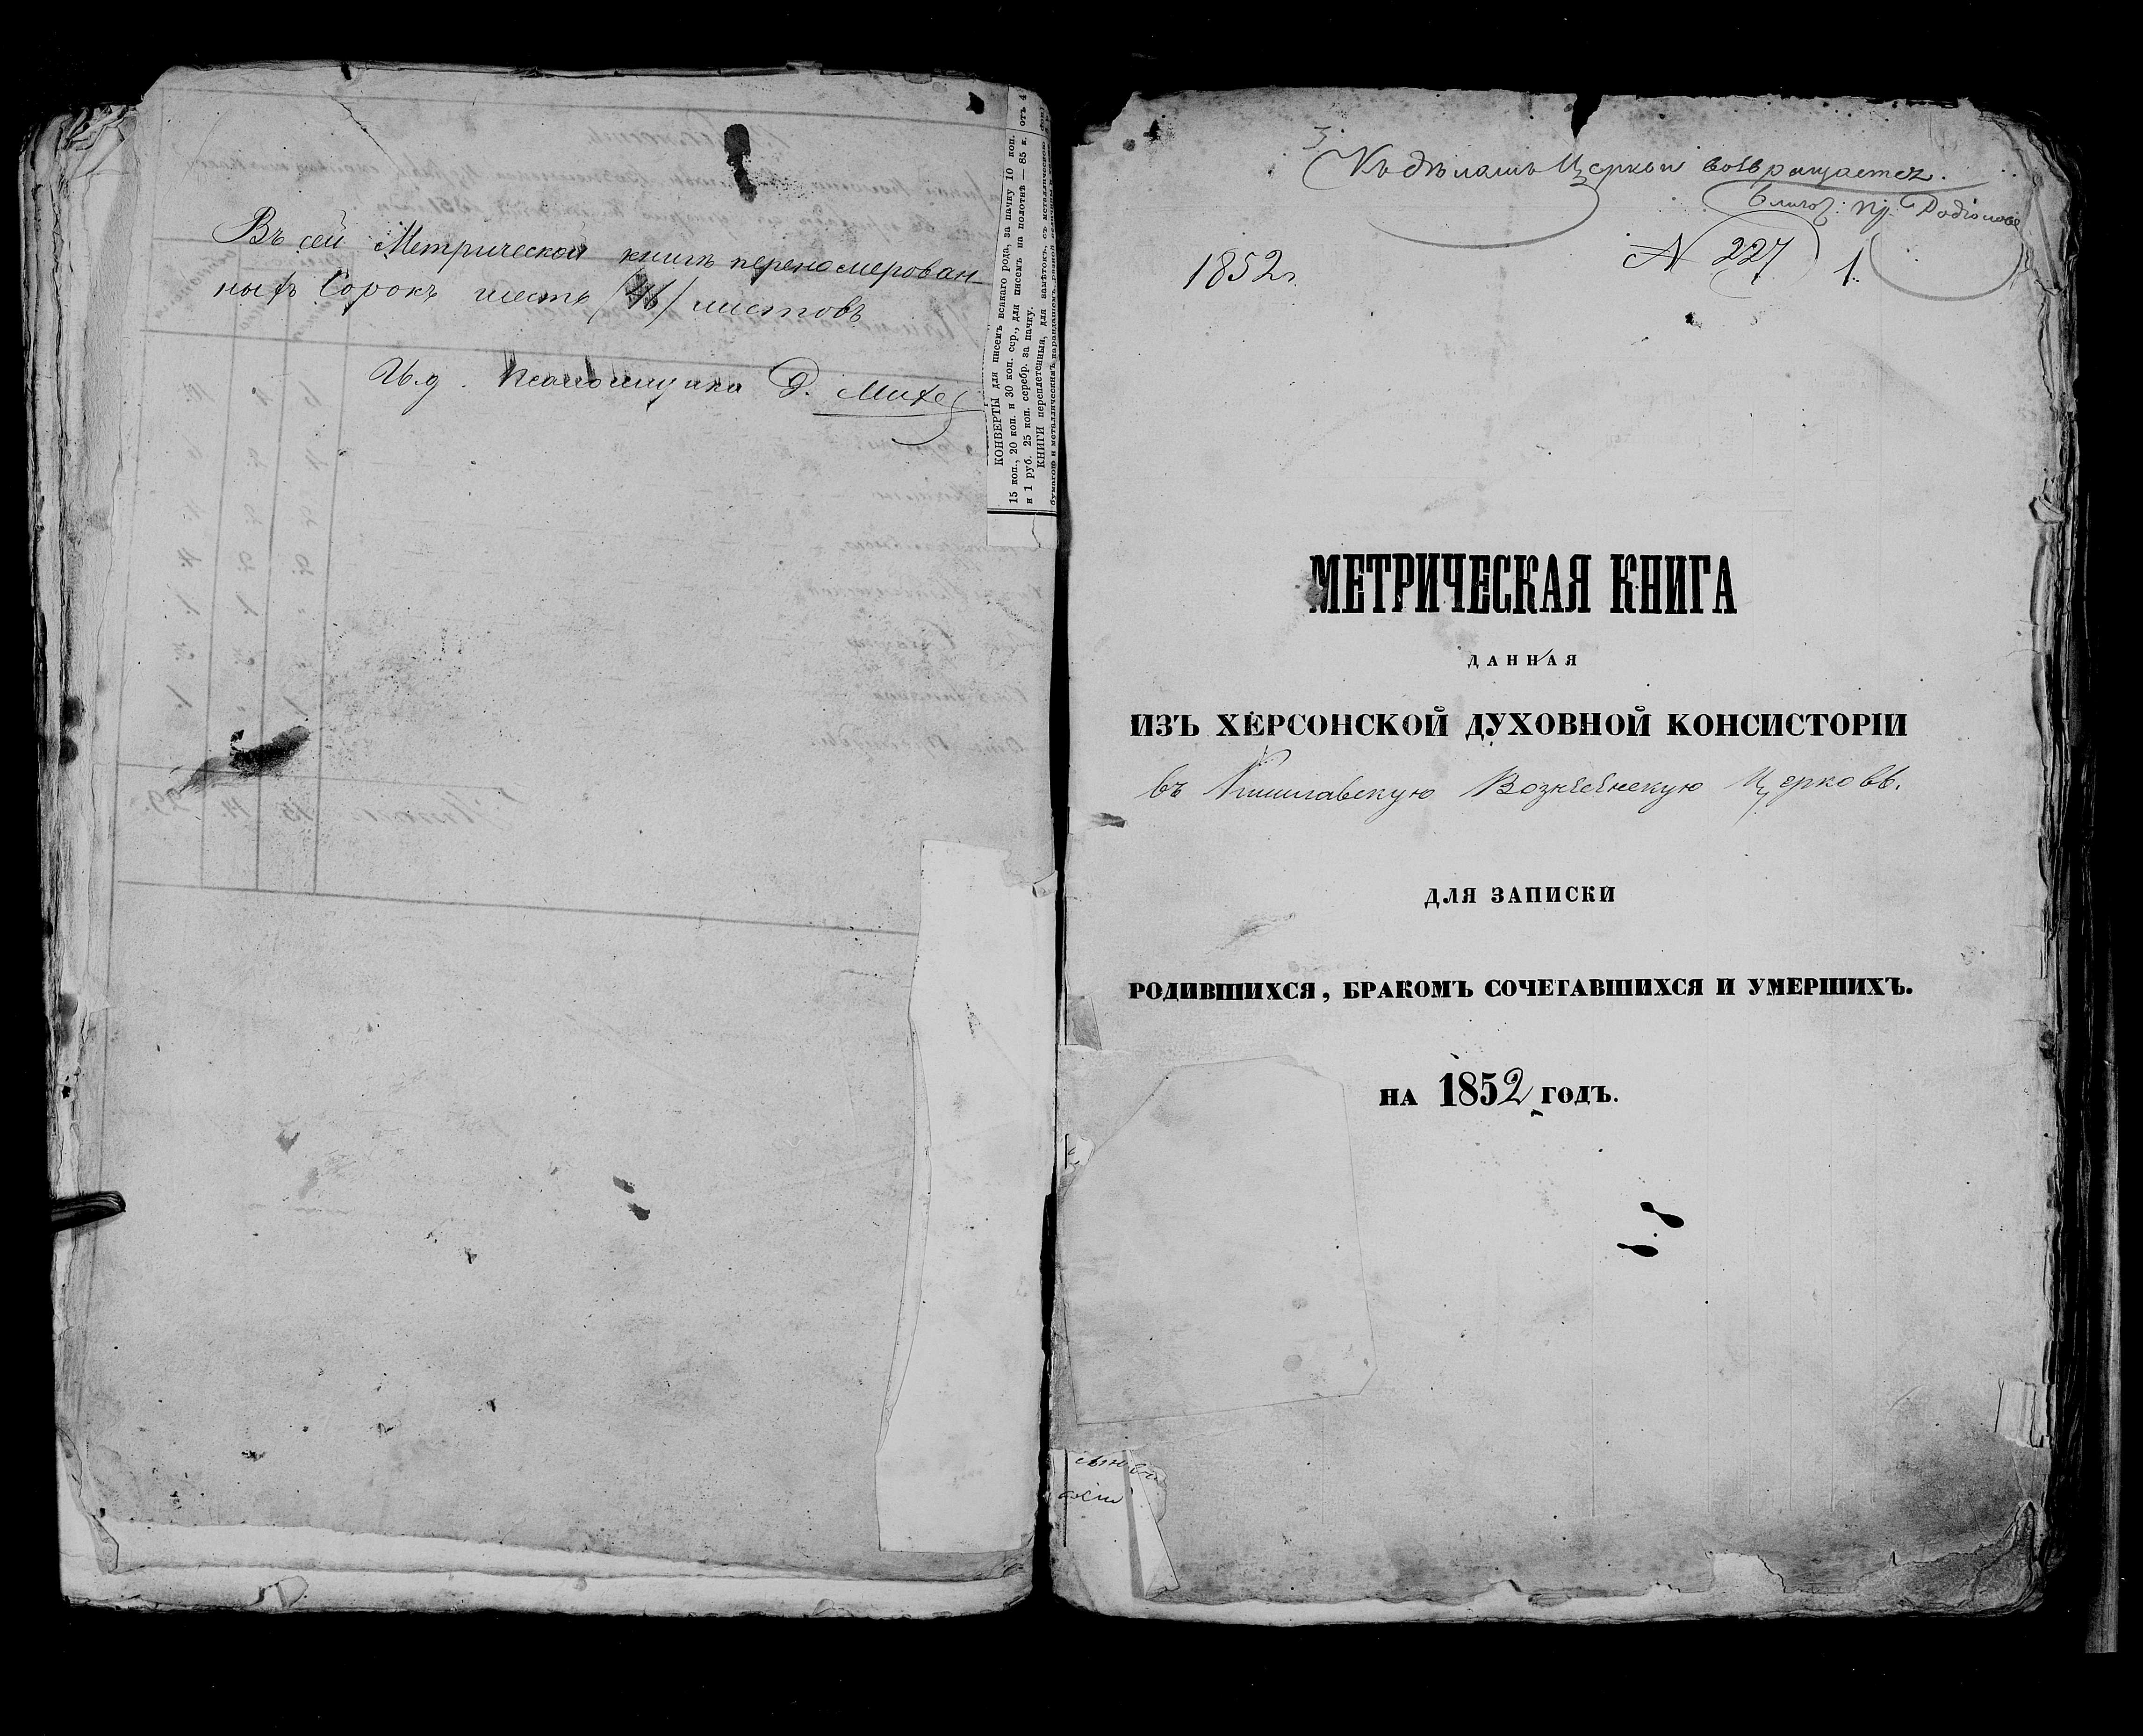 Въ сей Метрической книгѣ перенумерован-
ныхъ Сорокъ шесть /46/ листовъ
И.д. Псаломщика
КОНВЕРТЫ для писемъ всякаго рода, за пачку 10 коп.
15 коп., 20 коп. и 30 коп. сер., для писемъ на полотнѣ — 85 к.
и 1 руб. 25 коп. серебр. за пачку.
КНИГИ переплетенныя, для замѣтокъ, съ металлическою
отъ 4
Къ дѣламъ Церкви возвращается.
Благоч: Пр.
1852 г.
№ 227
1.
МЕТРИЧЕСКАЯ КНИГА
ДАННАЯ
ИЗЪ ХЕРСОНСКОЙ ДУХОВНОЙ КОНСИСТОРІИ
въ Вознесенскую Церковь.
ДЛЯ ЗАПИСКИ
РОДИВШИХСЯ, БРАКОМЪ СОЧЕТАВШИХСЯ И УМЕРШИХЪ.
НА 1852 ГОДЪ.